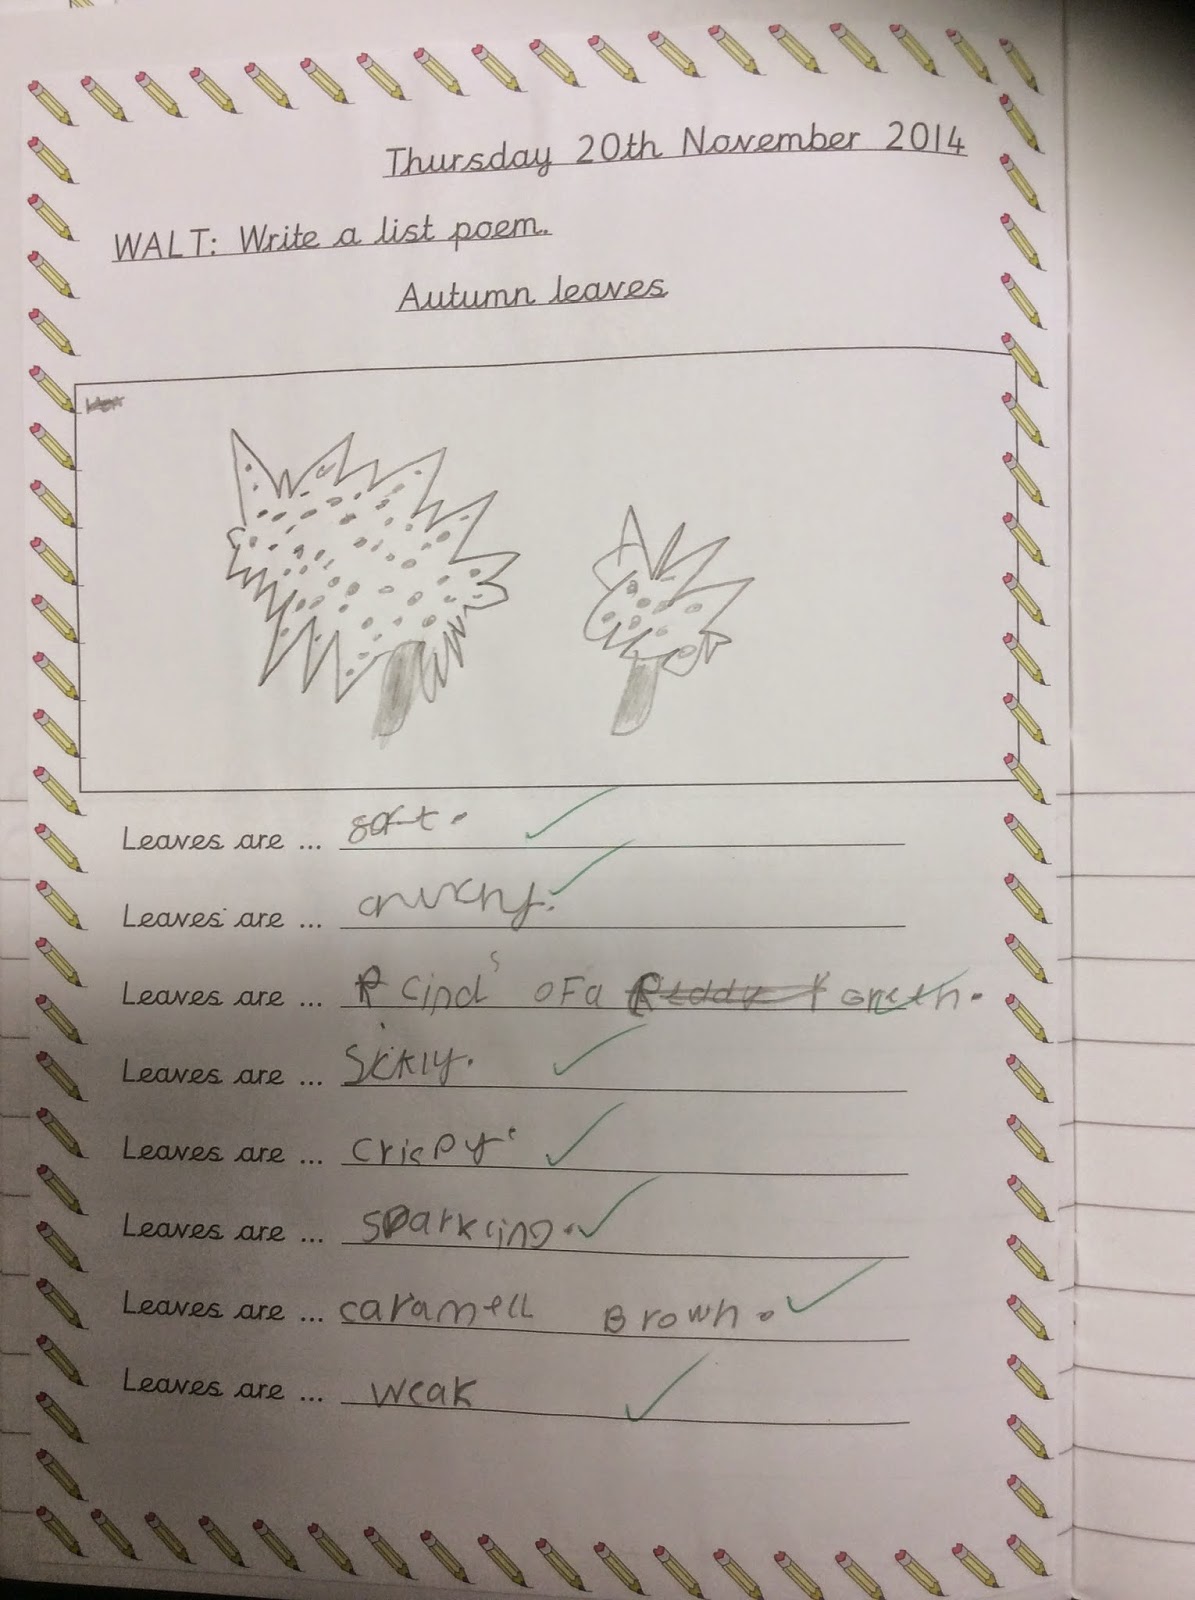 Thursday 20th November 2014
WALT: Write a list poem.
Autumn leaves
Leaves are ... soft.
Leaves are ... crunchy.
Leaves are ... cinds ofa Green.
Leaves are ... Sickly.
Leaves are ... crispy.
Leaves are ... sparkling.
Leaves are ... caramell Brown.
Leaves are ... weak